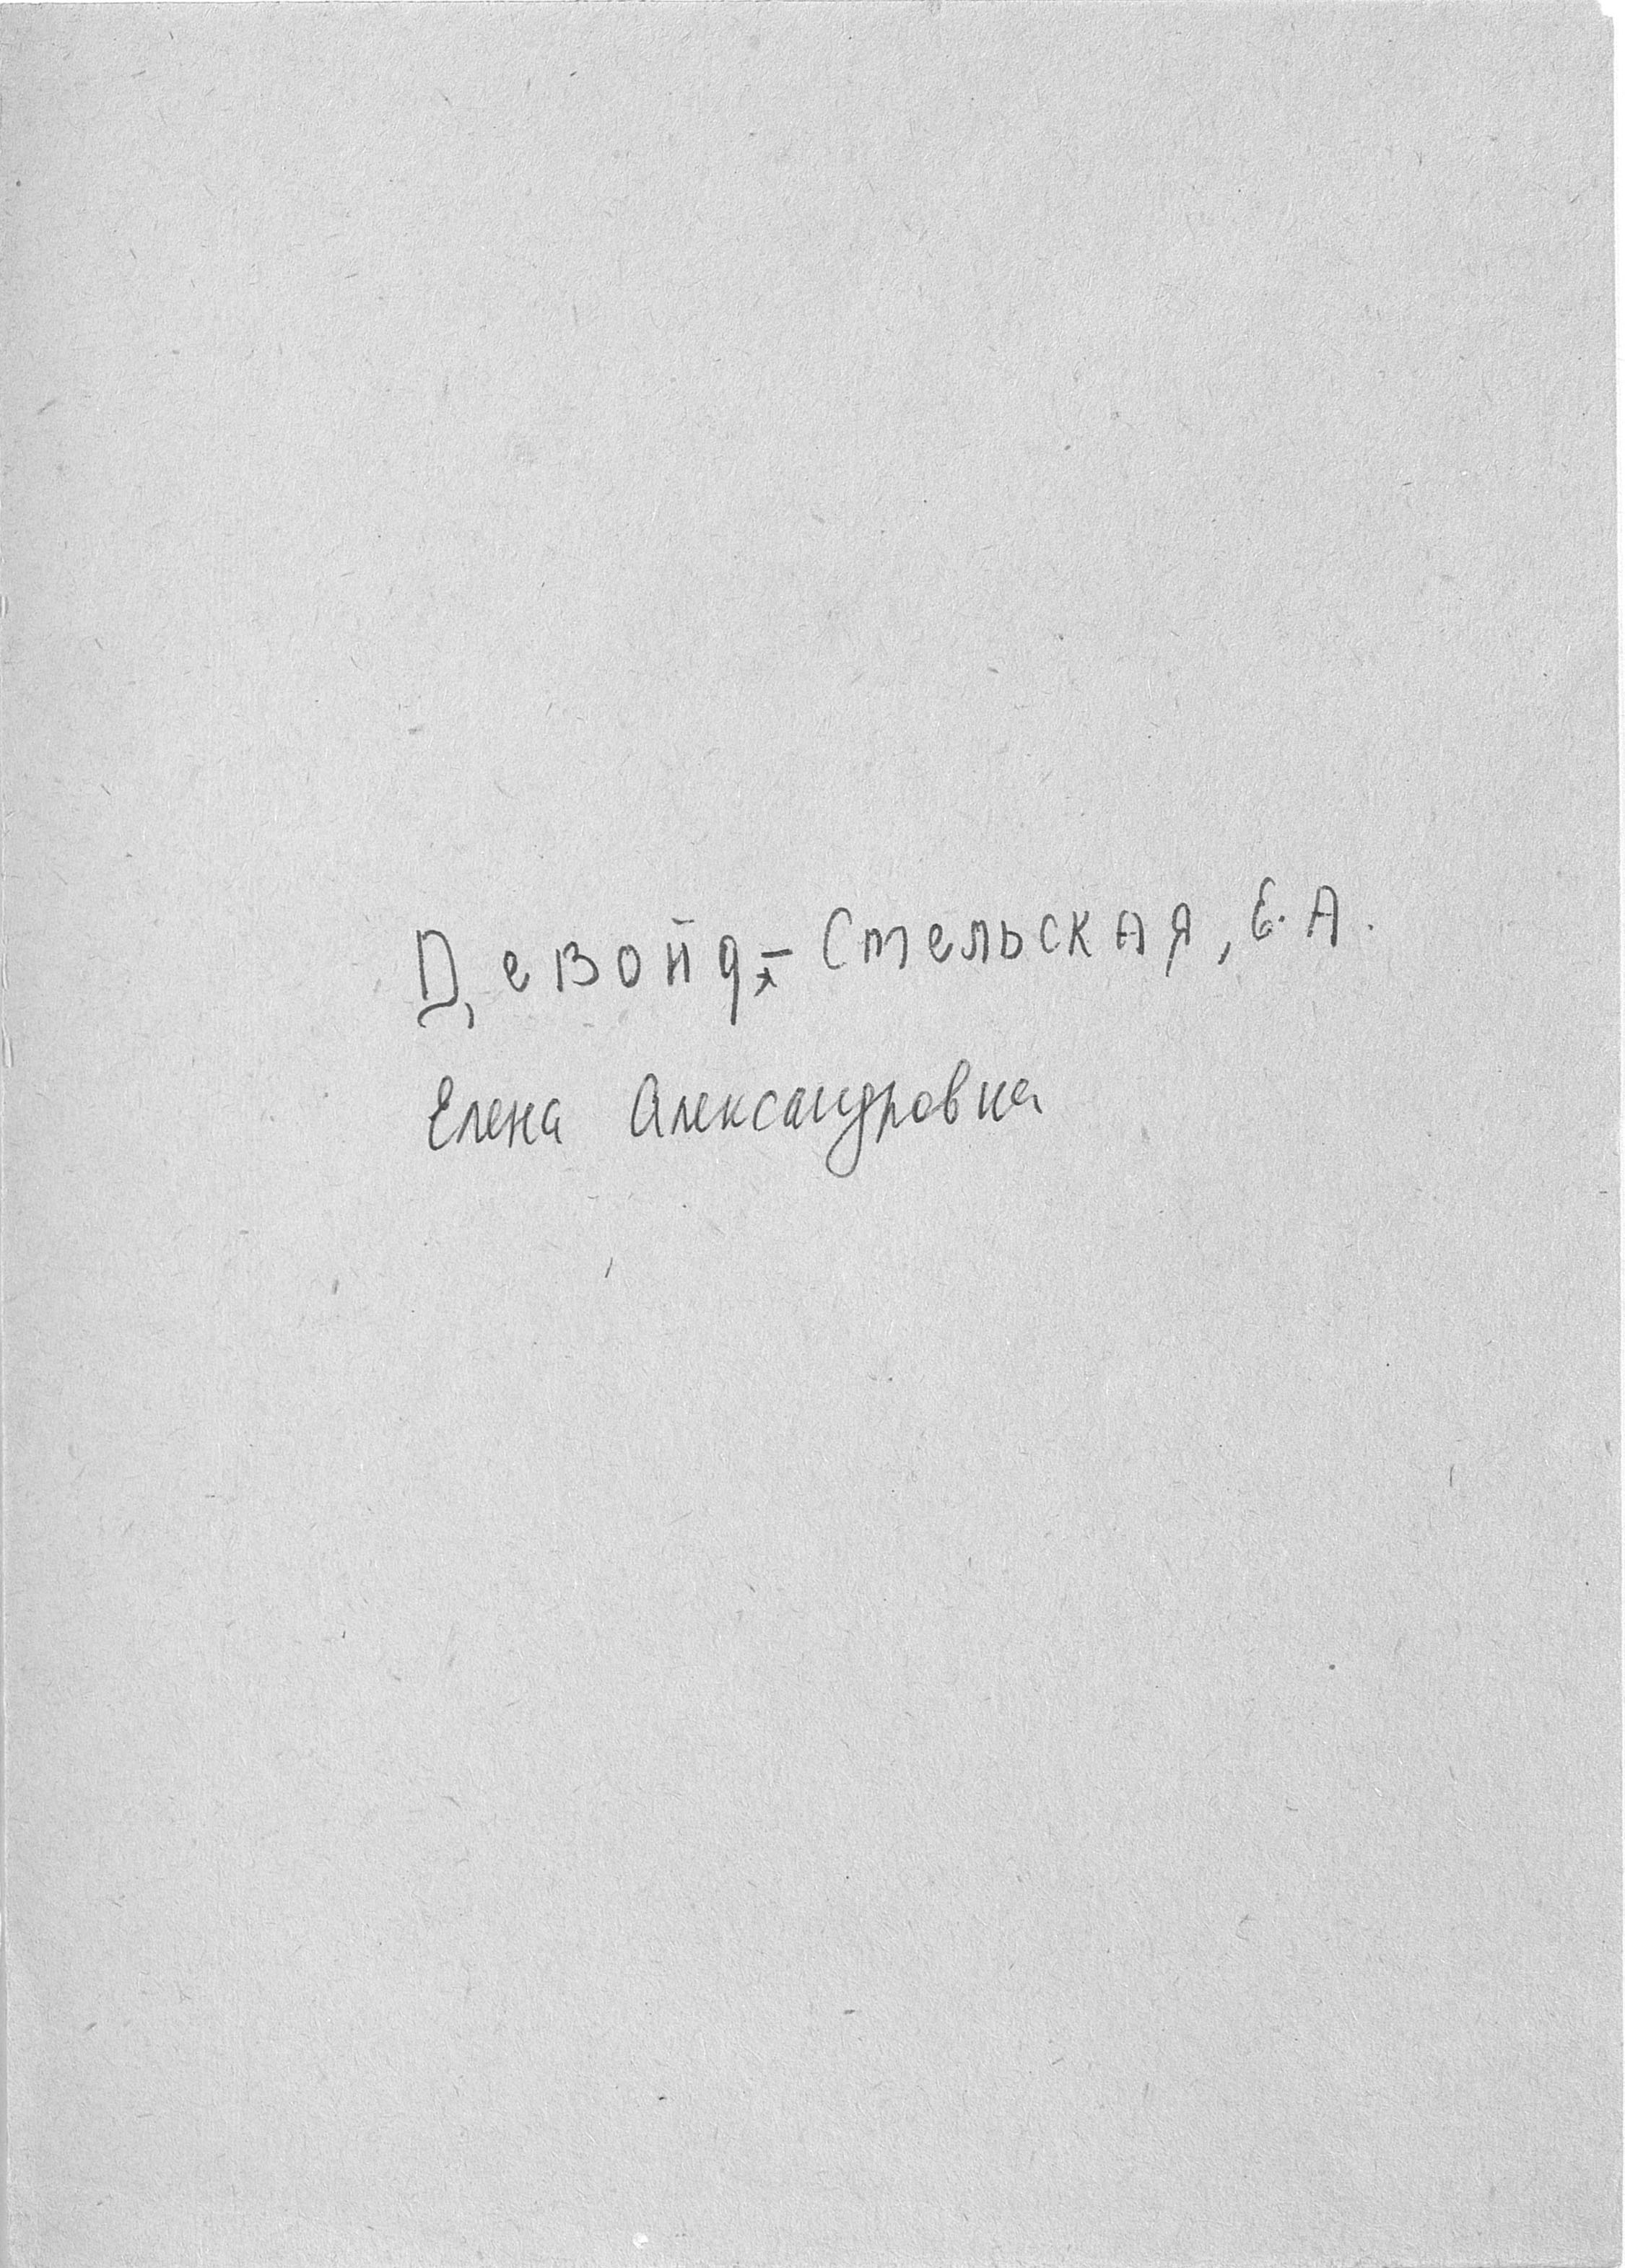 Девойд-Стельская, Е.А.
Елена Александровна